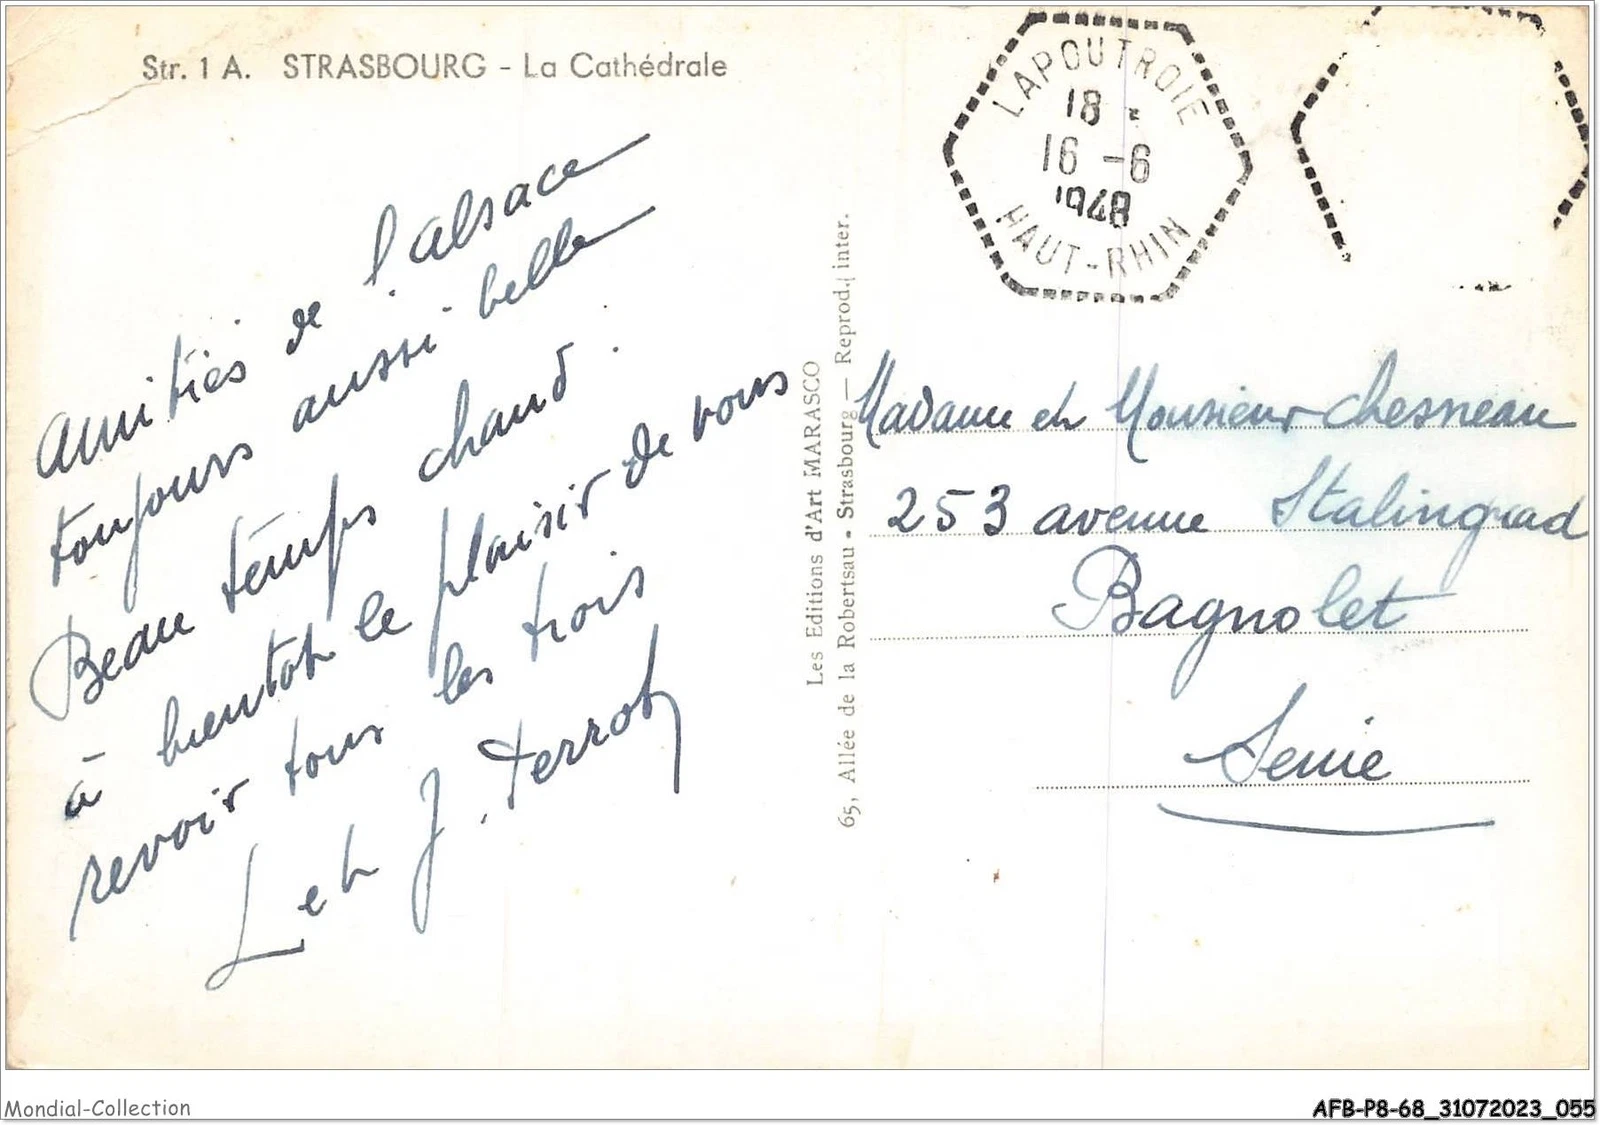 Str. 1 A. STRASBOURG - La Cathédrale
LAPOUTROIE
18 *
16 -6
1948
HAUT-RHIN
amitiés de l'alsace
toujours aussi belle
Beau temps chaud.
à bientot le plaisir de vous
revoir tous les trois
L et J. Perrot
Les Editions d'Art MARASCO
65, Allée de la Robertsau - Strasbourg — Reprod. inter.
Madame et Monsieur Chesneau
253 avenue Stalingrad
Bagnolet
Seine
Mondial-Collection
AFB-P8-68_31072023_055